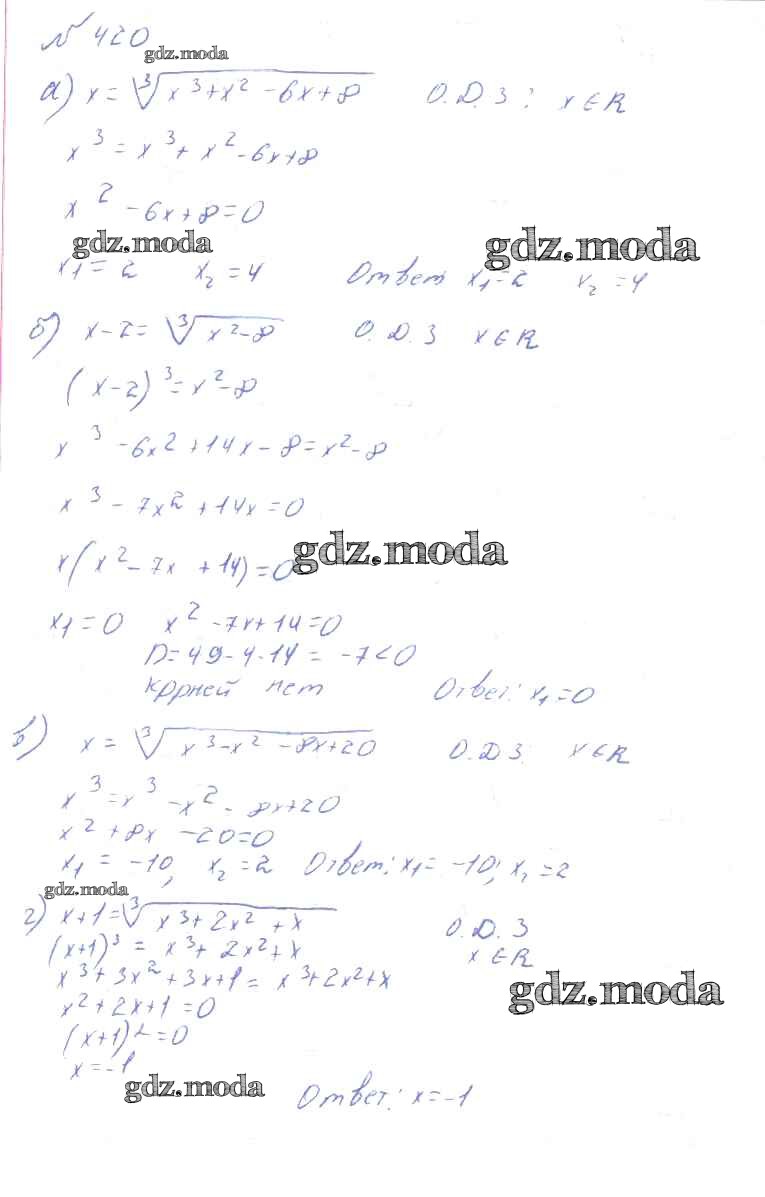 № 420
gdz.moda
а) x = ∛(x³+x²-6x+8) О.Д.З: x∈R
x³ = x³+x²-6x+8
x²-6x+8=0
gdz.moda gdz.moda
x₁=2 x₂=4 Ответ: x₁=2 x₂=4
б) x-2= ∛(x²-8) О.Д.З x∈R
(x-2)³=x²-8
x³-6x²+14x-8=x²-8
x³-7x²+14x=0
gdz.moda
x(x²-7x+14)=0
x₁=0 x²-7x+14=0
D=49-4·14= -7<0
корней нет Ответ: x₁=0
в) x= ∛(x³-x²-8x+20) О.Д.З. x∈R
x³=x³-x²-8x+20
x²+8x-20=0
x₁=-10, x₂=2 Ответ: x₁=-10; x₂=2
gdz.moda
г) x+1=∛(x³+2x²+x) О.Д.З
(x+1)³= x³+2x²+x x∈R
x³+3x²+3x+1= x³+2x²+x
gdz.moda
x²+2x+1=0
(x+1)²=0
x=-1
gdz.moda
Ответ: x=-1